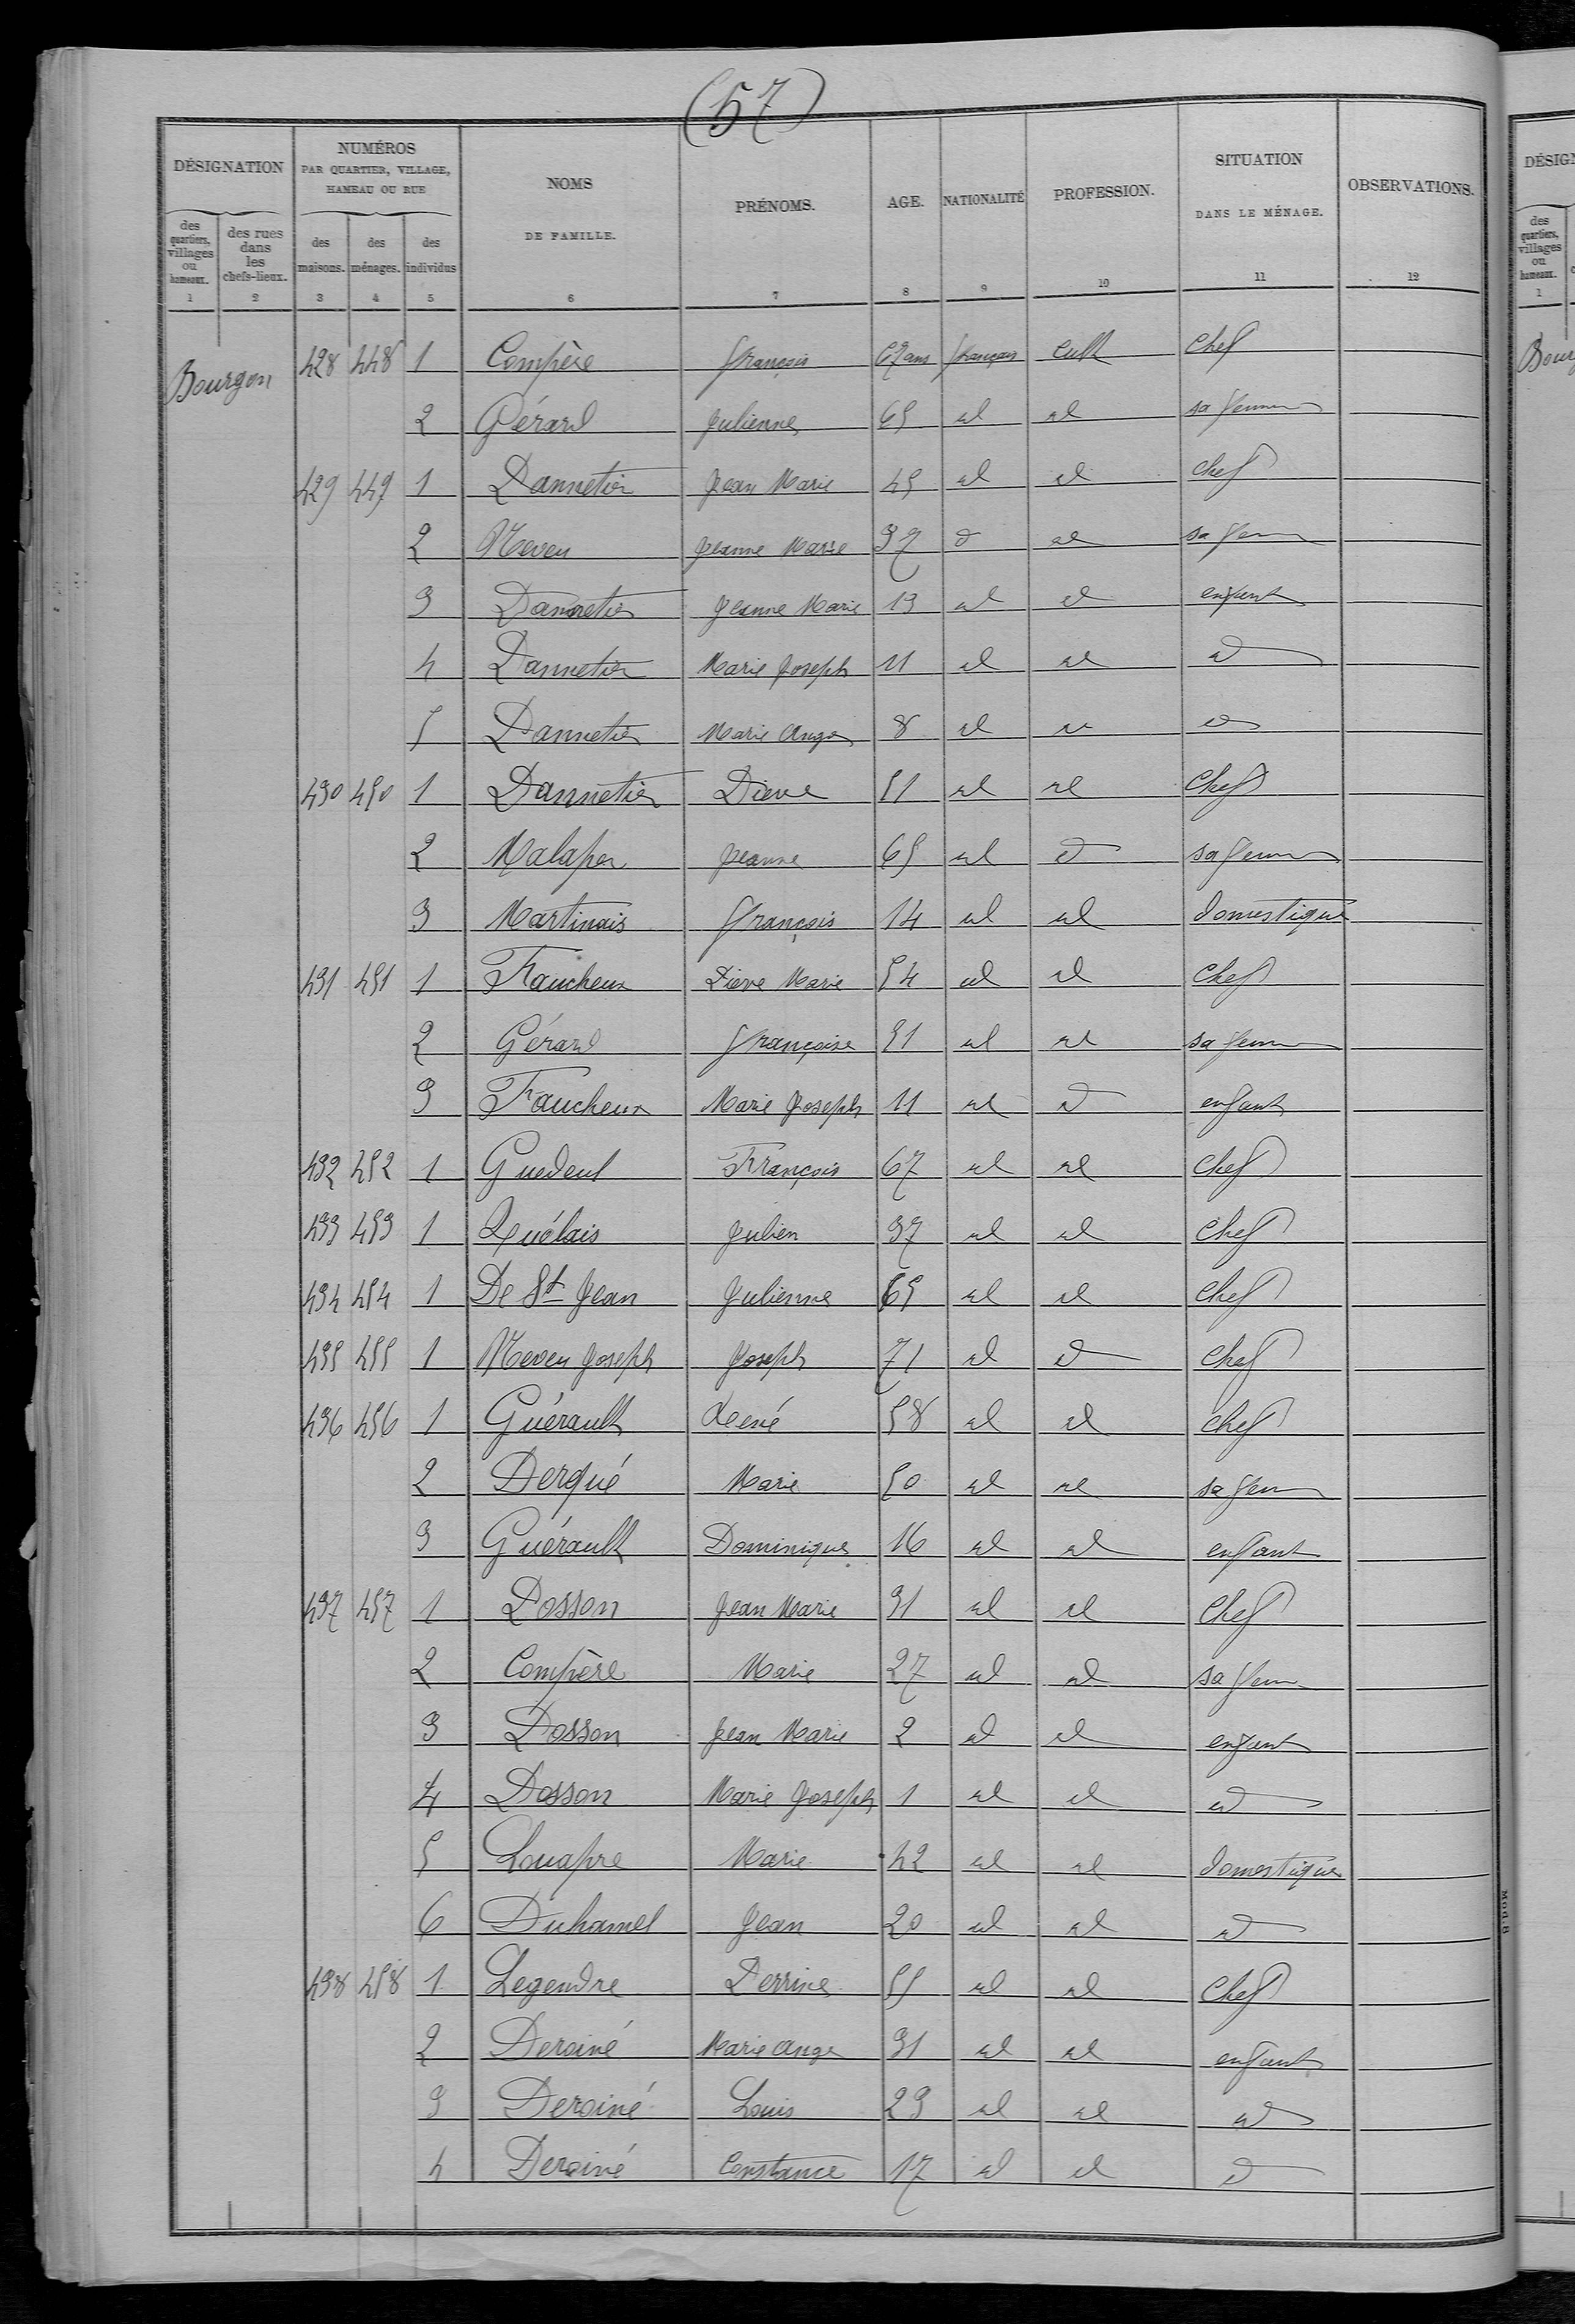 (57)
DÉSIGNATION
NUMÉROS PAR QUARTIER, VILLAGE, HAMEAU OU RUE
NOMS DE FAMILLE.
PRÉNOMS.
AGE.
NATIONALITÉ
PROFESSION.
SITUATION DANS LE MÉNAGE.
OBSERVATIONS.
des quartiers, villages ou hameaux.
des rues dans les chefs-lieux.
des maisons.
des ménages.
des individus
1 2 3 4 5 6 7 8 9 10 11 12
Bourgon 428 448 1 Compère François 67 ans français Cult chef
2 Gérard Julienne 65 id id sa femme
429 449 1 Dannetier Jean Marie 45 id id chef
2 Neveu Jeanne Marie 37 d id sa fem
3 Dannetier Jeanne Marie 13 id id enfant
4 Dannetier Marie Joseph 11 id id id
5 Dannetier Marie Ange 8 id id id
430 450 1 Dannetier Pierre 51 id id Chef
2 Jeanne 65 id id sa femme
3 Martinais François 14 id id domestique
431 451 1 Faucheux Pierre Marie 54 id id Chef
2 Gérard Françoise 51 id id sa femme
3 Faucheux Marie Joseph 11 id id enfant
432 452 1 Guedeul François 67 id id Chef
433 453 1 Quélais Julien 37 id id Chef
434 454 1 De St Jean Julienne 65 id id Chef
435 455 1 Neveu Joseph Joseph 71 id id Chef
436 456 1 Guérault René 58 id id chef
2 Derqué Marie 50 id id sa fem
3 Guérault Dominique 16 id id enfant
437 457 1 Dosson Jean Marie 31 id id Chef
2 Compère Marie 27 id id sa fem
3 Dosson Jean Marie 2 id id enfant
4 Dosson Marie Joseph 1 id id id
5 Louapre Marie 42 id id domestique
6 Duhamel Jean 20 id id id
438 458 1 Legendre Perrine 55 id id Chef
2 Deroiné Marie Ange 31 id id enfant
3 Deroiné Louis 23 id id id
4 Deroiné Constance 17 id id id
Mod. B
DÉSIGN
des quartiers, villages ou hameaux.
1
Bourg